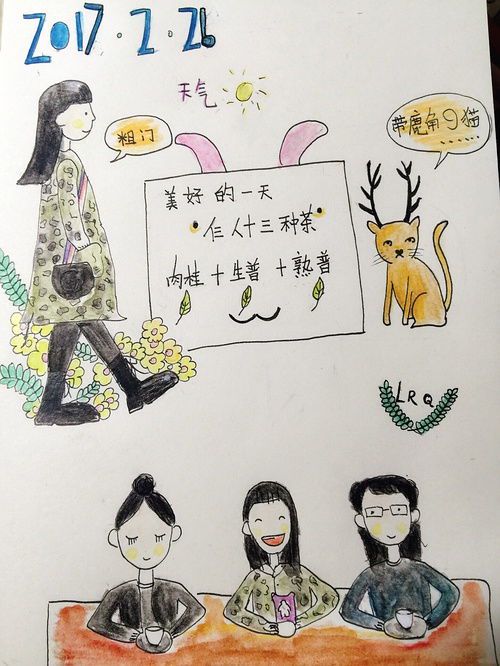 2017.2.26
天气
粗门
带鹿角の猫......
美好的一天
仨人+三种茶
肉桂+生普+熟普
LRQ